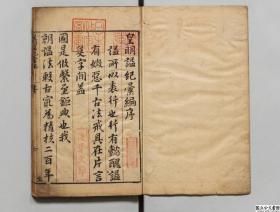 皇明諡紀彙編序
諡所以表行也行有懿醜諡
有媺惡千古法戒具在片言
隻字間蓋
國是攸繫至鉅典也我
朝諡法較古寔為精核二百年